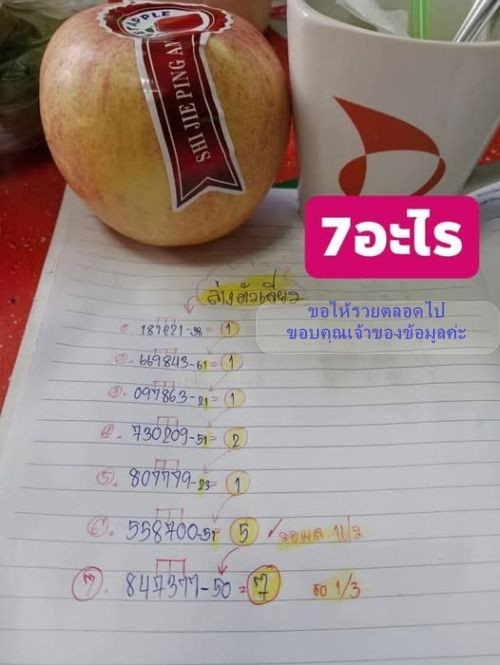 APPLE
SHI JIE PING AN
7อะไร
ล่างตัวเดียว
ขอให้รวยตลอดไป
ขอบคุณเจ้าของข้อมูลค่ะ
669843-61= 1
③. 097863-21= 1
④. 730209-51= 2
⑤. 807779-23= 1
⑥. 558700-51 5 ✓
⑦. 847377-50 = 7 รอ 1/3